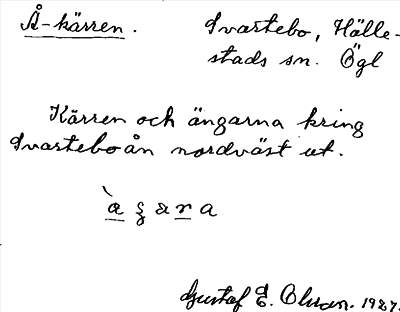 Å-kärren. Svartebo, Hälle-
stads sn. Ögl
Kärren och ängarna kring
Svarteboån nordväst ut.
Gustaf E. Olsson. 1927.